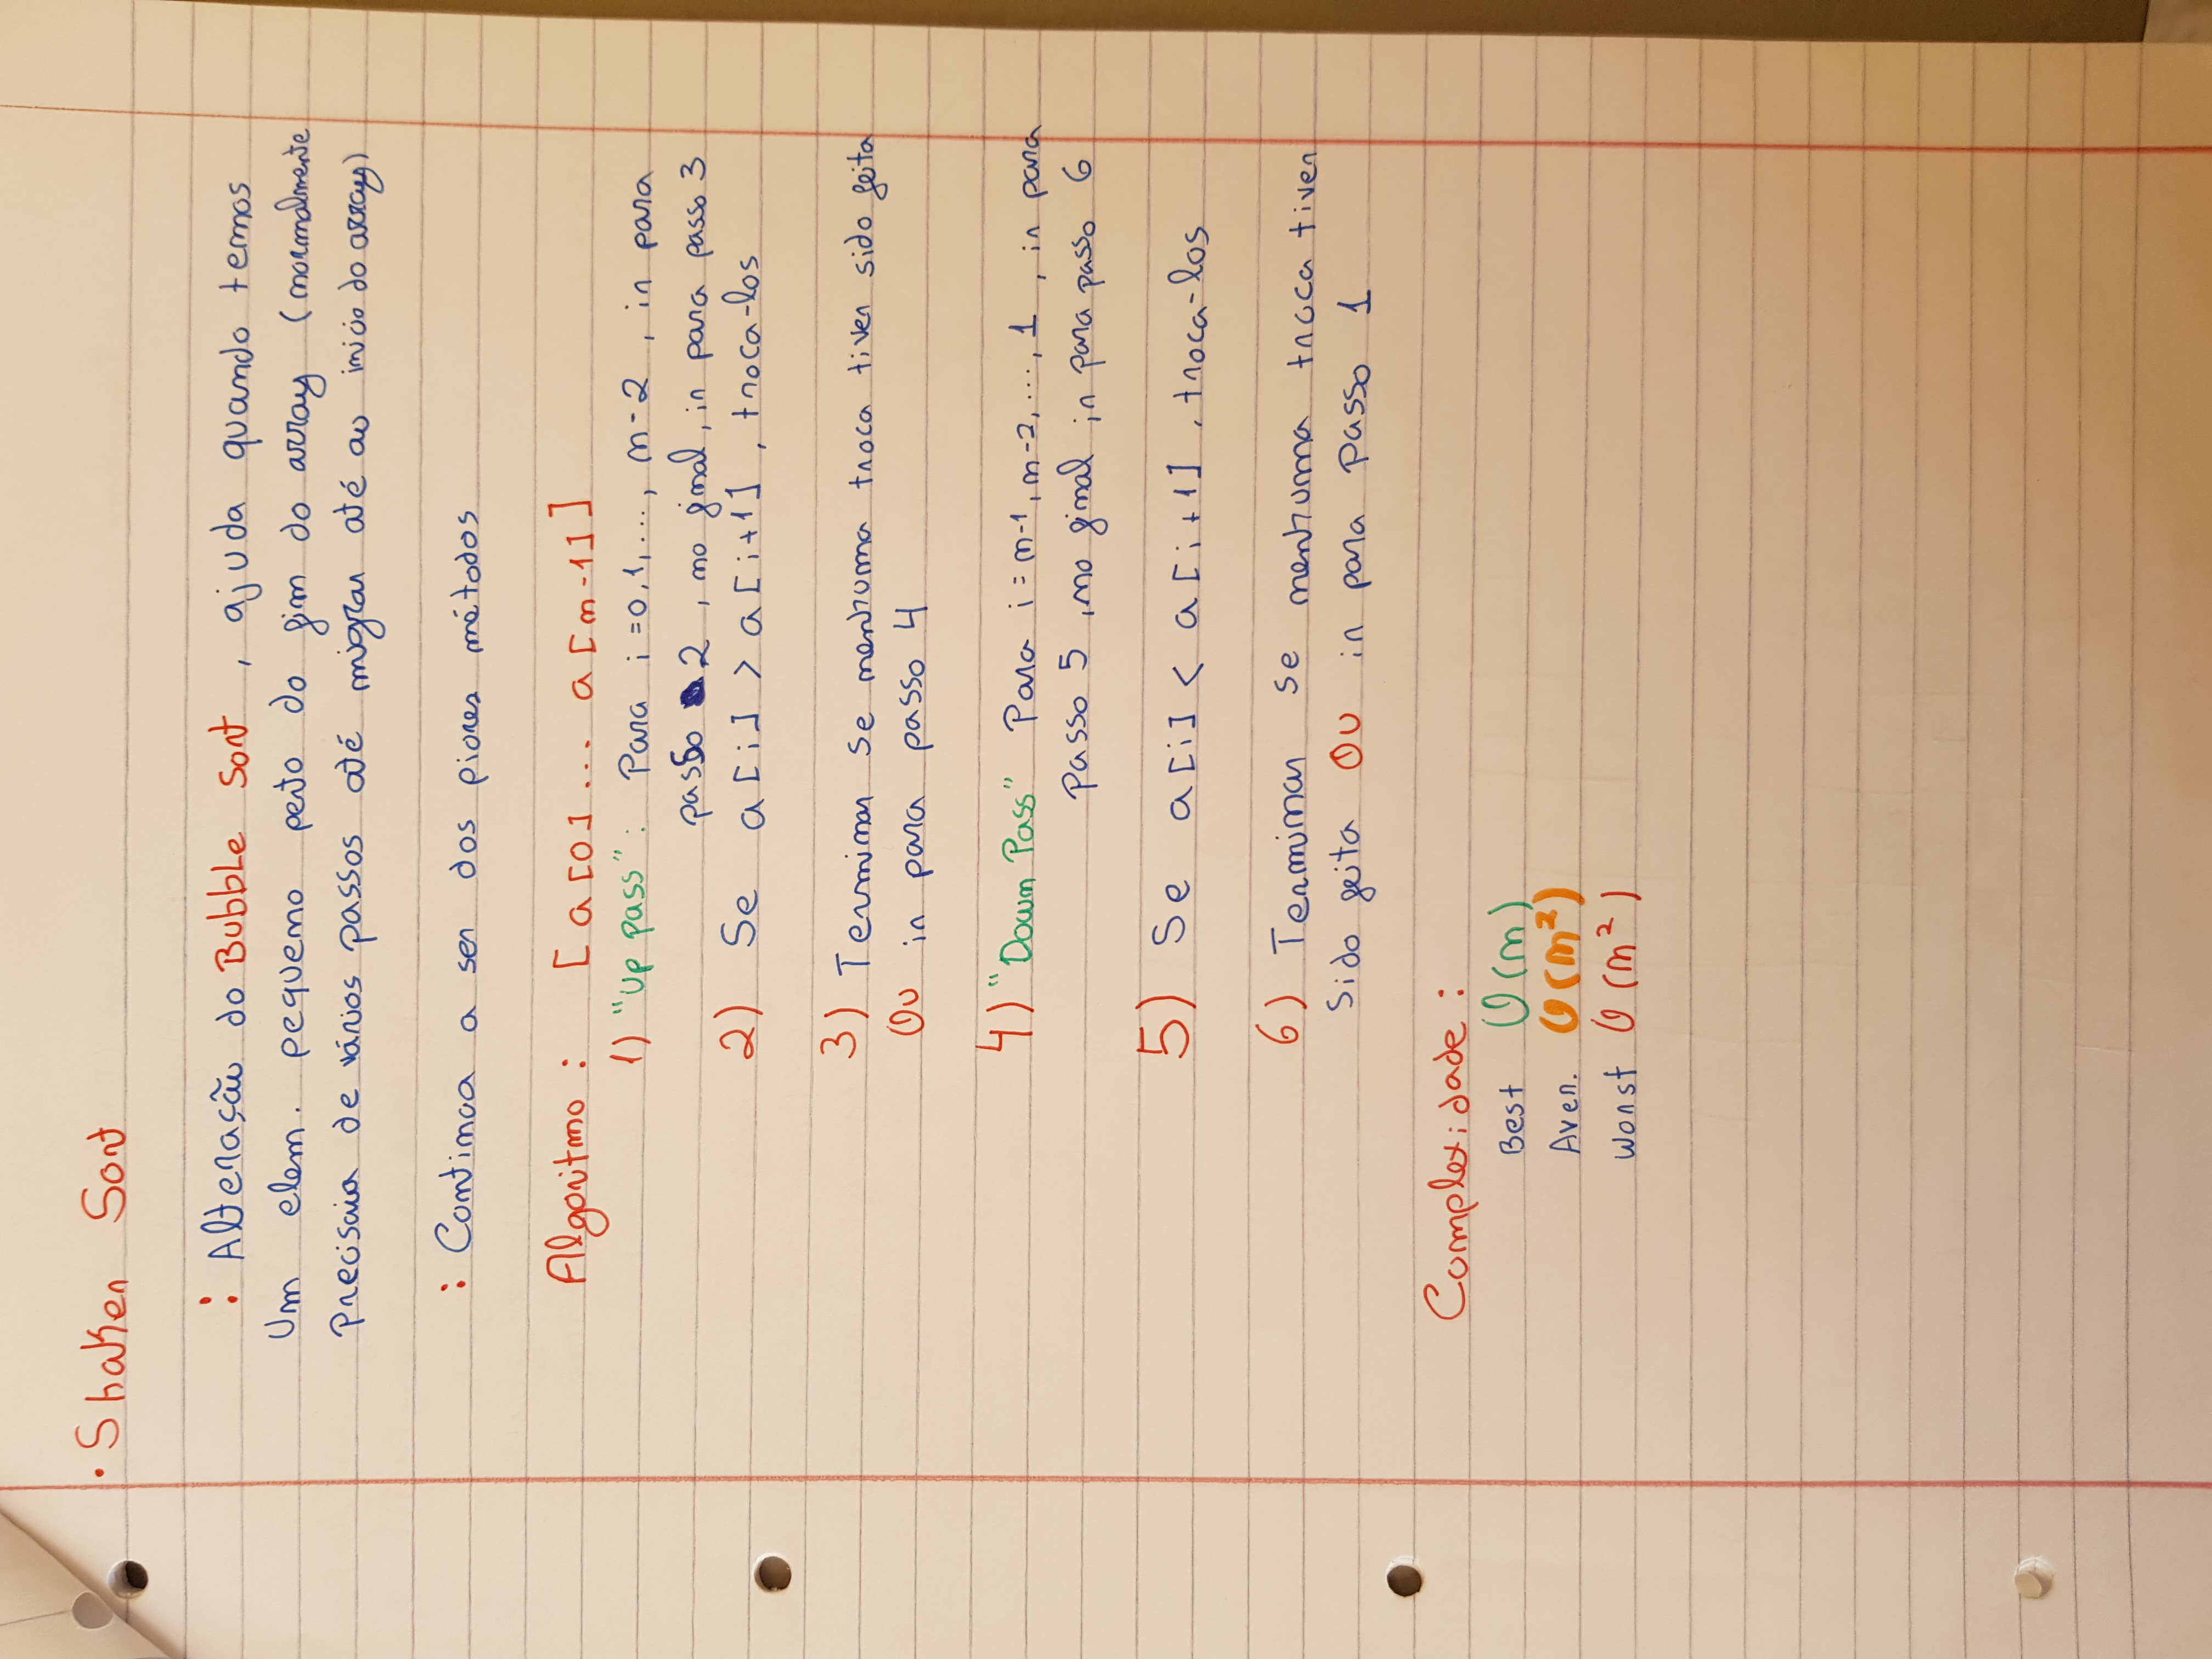 · Shaker Sort
: Alteração do Bubble Sort , ajuda quando temos
Um elem. pequeno perto do fim do array (normalmente
Precisaia de vários passos até migrar até ao inicio do array)
: Continoa a ser dos piores métodos
Algoritmo : [ a[0] ... a[n-1] ]
1) "Up pass" : Para i =0,1,..., n-2 , ir para
passo 2 , no final, ir para passo 3
2) Se a[i] > a[i+1] , troca-los
3) Terminar se nenhuma troca tiver sido feita
OU ir para passo 4
4) "Down Pass" Para i = n-1, n-2, ..., 1 , ir para
Passo 5 , no final ir para passo 6
5) Se a[i] < a[i+1] , troca-los
6) Terminar se nenhuma troca tiver
Sido feita OU ir para Passo 1
Complexidade :
Best O(n)
Aver. O(n²)
Worst O(n²)